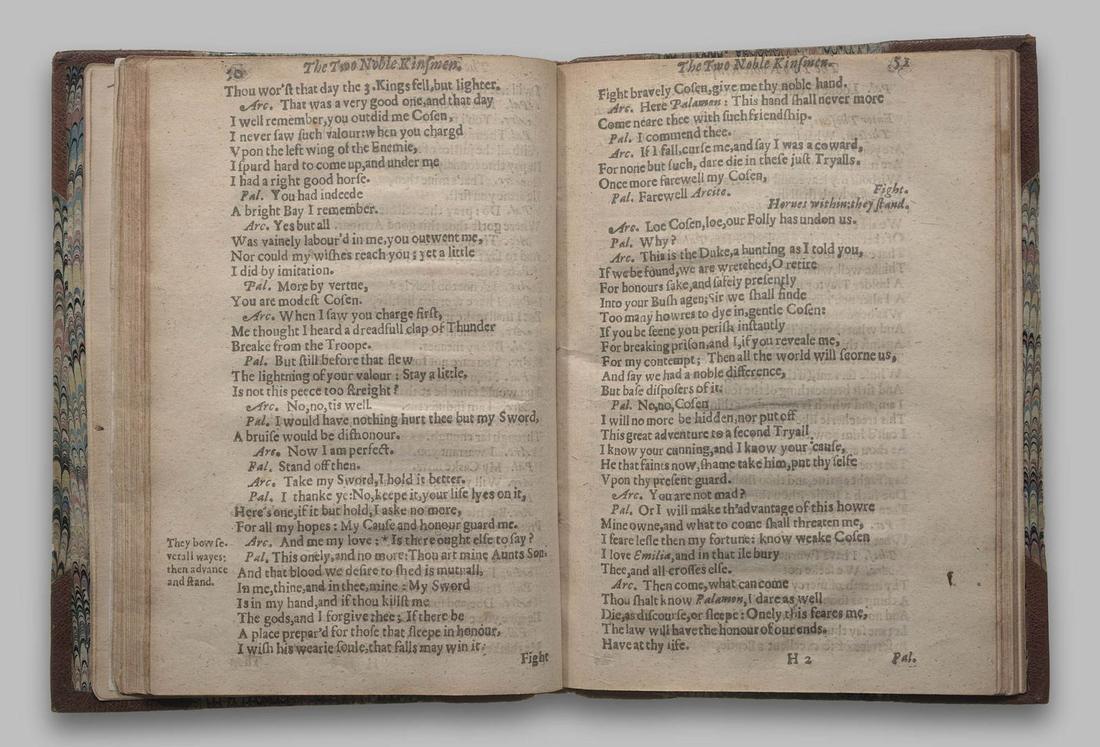 50
The Two Noble Kinsmen.
Thou wor'st that day the 3. Kings fell, but lighter.
Arc. That was a very good one, and that day
I well remember, you outdid me Cosen,
I never saw such valour: when you chargd
Vpon the left wing of the Enemie,
I spurd hard to come up, and under me
I had a right good horse.
Pal. You had indeede
A bright Bay I remember.
Arc. Yes but all
Was vainely labour'd in me, you outwent me,
Nor could my wishes reach you; yet a little
I did by imitation.
Pal. More by vertue,
You are modest Cosen.
Arc. When I saw you charge first,
Me thought I heard a dreadfull clap of Thunder
Breake from the Troope.
Pal. But still before that flew
The lightning of your valour: Stay a little,
Is not this peece too streight?
Arc. No, no, tis well.
Pal. I would have nothing hurt thee but my Sword,
A bruise would be dishonour.
Arc. Now I am perfect.
Pal. Stand off then.
Arc. Take my Sword, I hold it better.
Pal. I thanke ye: No, keepe it, your life lyes on it,
Here's one, if it but hold, I aske no more,
For all my hopes: My Cause and honour guard me.
Arc. And me my love: * Is there ought else to say?
They bow se-
verall wayes:
then advance
and stand.
Pal, This onely, and no more: Thou art mine Aunts Son.
And that blood we desire to shed is mutuall,
In me, thine, and in thee, mine: My Sword
Is in my hand, and if thou killst me
The gods, and I forgive thee; If there be
A place prepar'd for those that sleepe in honour,
I wish his wearie soule, that falls may win it:
Fight
The Two Noble Kinsmen.
51
Fight bravely Cosen, give me thy noble hand.
Arc. Here Palamon: This hand shall never more
Come neare thee with such friendship.
Pal. I commend thee.
Arc. If I fall, curse me, and say I was a coward,
For none but such, dare die in these just Tryalls.
Once more farewell my Cosen,
Pal. Farewell Arcite. Fight.
Hornes within: they stand.
Arc. Loe Cosen, loe, our Folly has undon us.
Pal. Why?
Arc. This is the Duke, a hunting as I told you,
If we be found, we are wretched, O retire
For honours sake, and safely presently
Into your Bush agen; Sir we shall finde
Too many howres to dye in, gentle Cosen:
If you be seene you perish instantly
For breaking prison, and I, if you reveale me,
For my contempt; Then all the world will scorne us,
And say we had a noble difference,
But base disposers of it.
Pal. No, no, Cosen
I will no more be hidden, nor put off
This great adventure to a second Tryall,
I know your cunning, and I know your cause,
He that faints now, shame take him, put thy selfe
Vpon thy present guard.
Arc. You are not mad?
Pal. Or I will make th'advantage of this howre
Mine owne, and what to come shall threaten me,
I feare lesse then my fortune: know weake Cosen
I love Emilia, and in that ile bury
Thee, and all crosses else.
Arc. Then come, what can come
Thou shalt know Palamon, I dare as well
Die, as discourse, or sleepe: Onely this feares me,
The law will have the honour of our ends.
Have at thy life.
H 2
Pal.